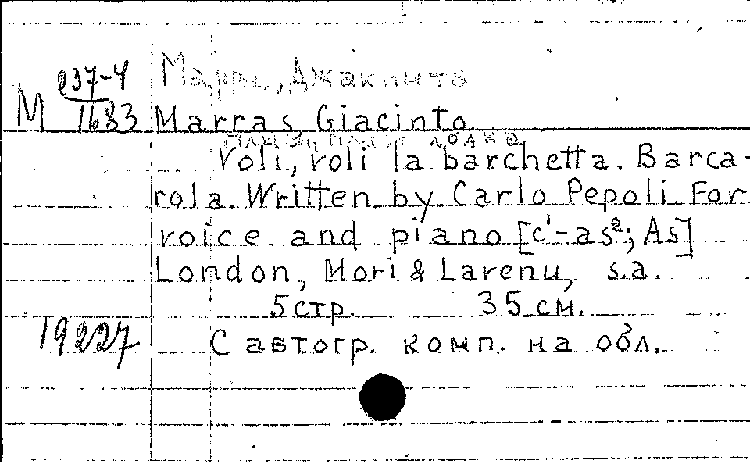 М 237-4 Марра, Джакинто
1683 Marras Giacinto
Voli, voli la barchetta. Barca-
rola. Written by Carlo Pepoli For
voice and piano [c¹-as²; As]
London, Mori & Lavenu, s.a.
5 стр. 35 см.
19227 С автогр. комп. на обл.